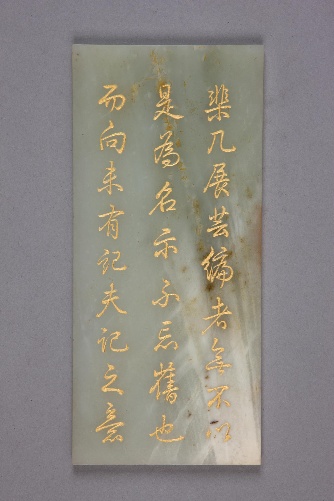 棐几展芸编者无不以
是為名示不忘舊也
而向未有記夫記之意